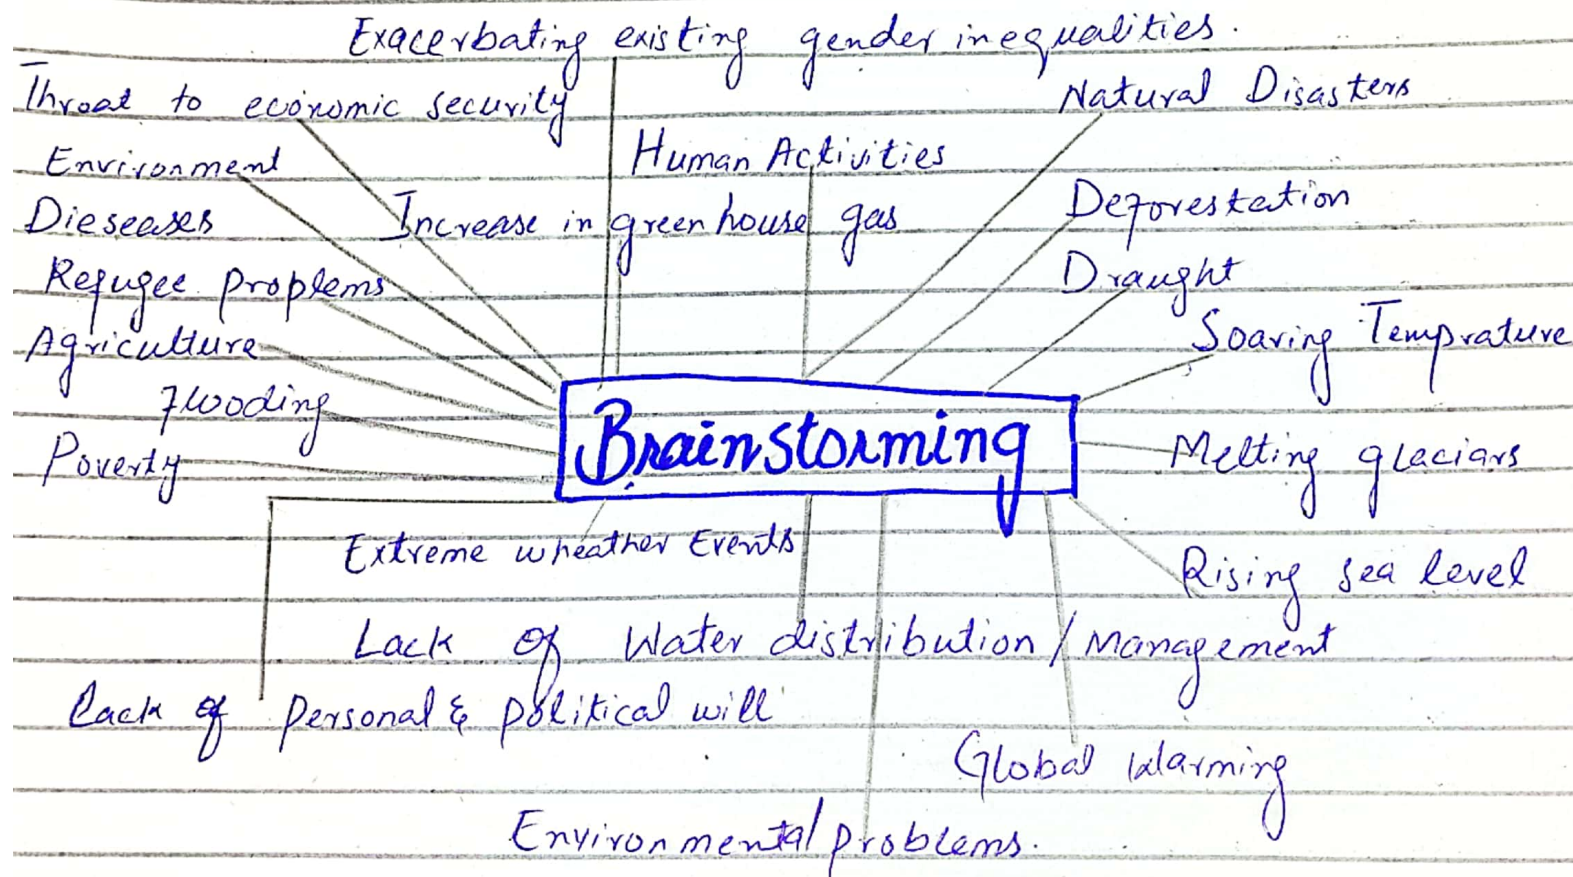 Exacerbating existing gender inequalities.
Throat to economic security
Natural Disasters
Environment
Human Activities
Dieseases
Increase in greenhouse gas
Deforestation
Refugee proplems
Draught
Agriculture
Soaring Temprature
Flooding
Brainstorming
Poverty
Melting glaciars
Extreme wheather Events
Rising sea level
Lack of Water distribution / Management
Lack of personal & political will
Global Warming
Environmental problems.